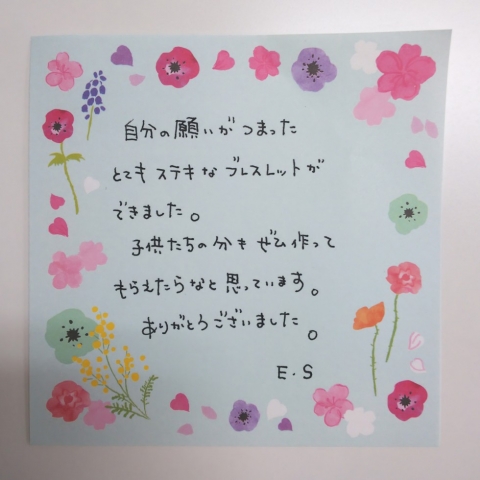 自分の願いがつまった
とてもステキなブレスレットが
できました。
子供たちの分もぜひ作って
もらえたらなと思っています。
ありがとうございました。
E.S